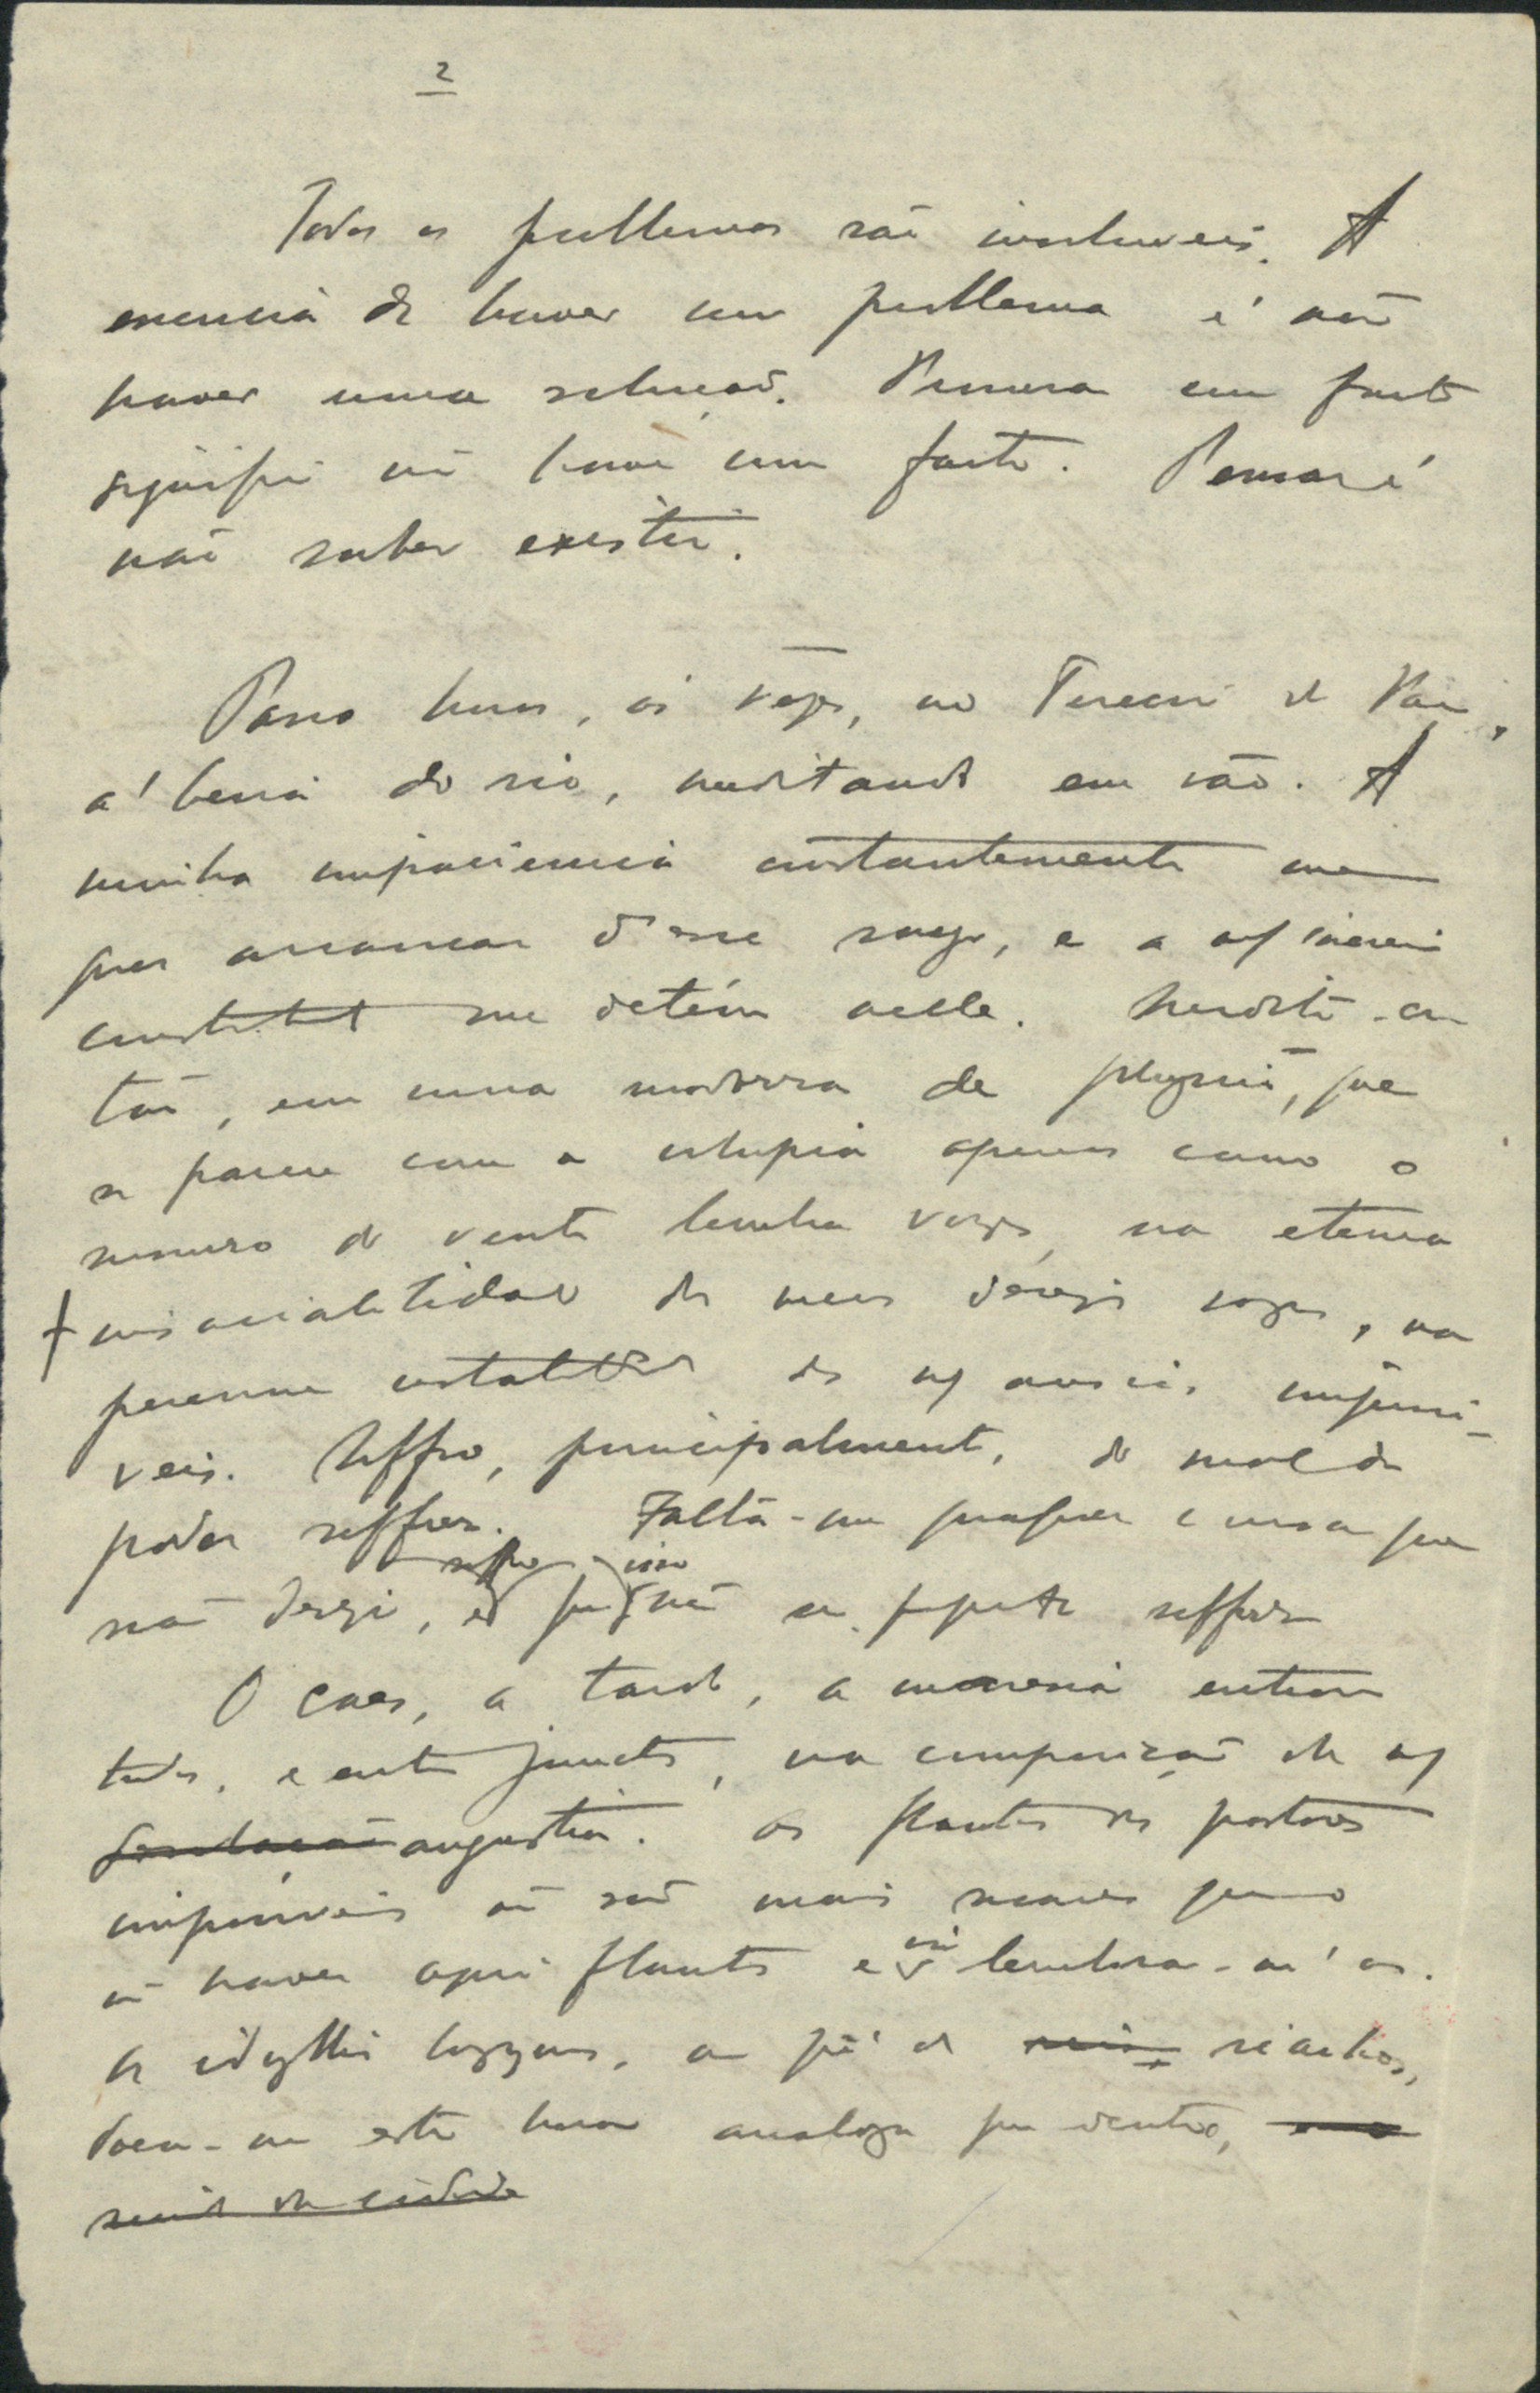 2
Todos os problemas são insoluveis. A
essencia de haver um problema é não
haver uma solução. Procurar um facto
significa não haver um facto. Pensar é
não saber existir.
Passo horas, ás vezes, no Terreiro do Paço,
á beira do rio, meditando em vão. A
minha impaciencia constantemente me
quer arrancar d'esse socego, e a m/ inercia
constantemente me detém nelle. Medito en-
tão, em uma modorra de physico, que
se parece com a volupia apenas como o
sussurro do vento lembra vozes, na eterna
+ insaciabilidade dos meus desejos vagos, na
perenne instabilidade das m/ ancias impossi-
veis. Soffro, principalmente, do mal de
poder soffrer. Falta-me qualquer cousa que
soffro isso
não desejo, e por não ser propriamente soffrer
O caes, a tarde, a maresia entram
todos, e entram junctos, na composição da m/
desolação angustia. As flautas dos pastores
impossiveis não são mais suaves que o
isso
não haver aqui flautas e lembrar-m'as.
Os idyllios longinquos, ao pé de rios riachos,
doem-me esta hora analoga por dentro,